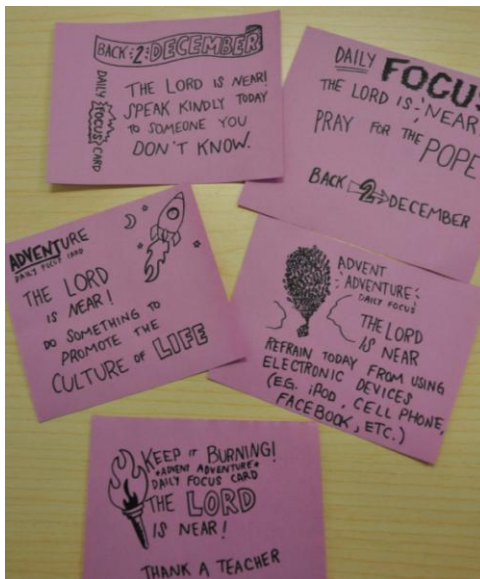 BACK :2: DECEMBER
DAILY FOCUS CARD
THE LORD IS NEAR!
SPEAK KINDLY TODAY
TO SOMEONE YOU
DON'T KNOW.
DAILY FOCUS
THE LORD IS NEAR
PRAY FOR THE POPE
BACK 2 DECEMBER
ADVENTURE
DAILY FOCUS CARD
THE LORD
IS NEAR!
DO SOMETHING TO
PROMOTE THE
CULTURE OF LIFE
ADVENT
ADVENTURE
DAILY FOCUS
THE LORD
IS NEAR
REFRAIN TODAY FROM USING
ELECTRONIC DEVICES
(E.G. iPOD, CELL PHONE,
FACEBOOK, ETC.)
KEEP IT BURNING!
*ADVENT ADVENTURE*
DAILY FOCUS CARD
THE LORD
IS NEAR!
THANK A TEACHER